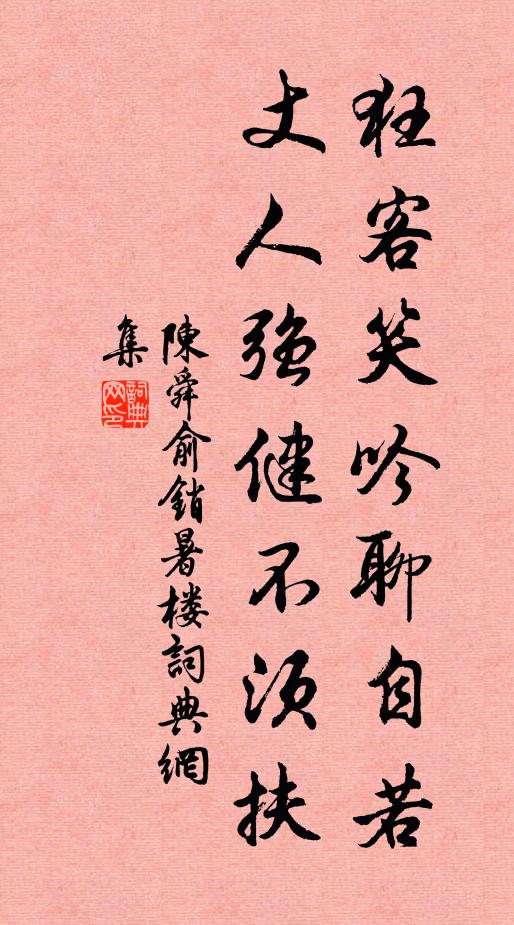 狂客笑吟聊自若
丈人強健不須扶
陳舜俞銷暑楼詞典網
集
詞典網印